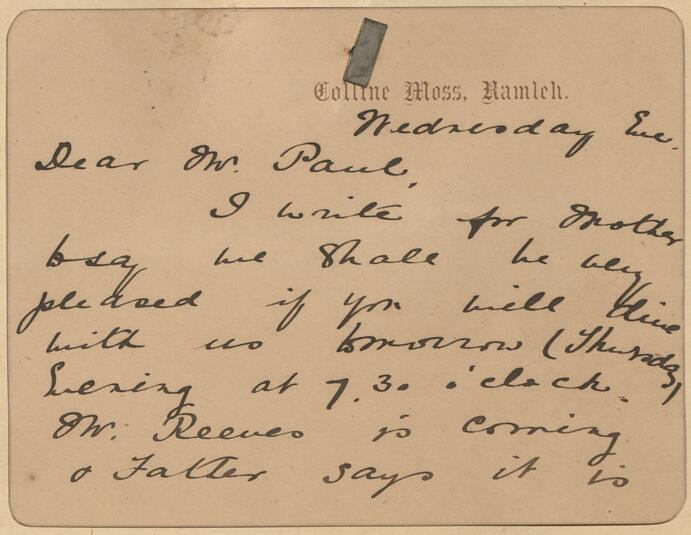 Colline Moss, Ramleh.
Wednesday Eve.
Dear Mr. Paul,
I write for Mother
to say we shall be very
pleased if you will dine
with us tomorrow (Thursday)
Evening at 7.30 o'clock.
Mr. Reeves is coming
& Father says it is